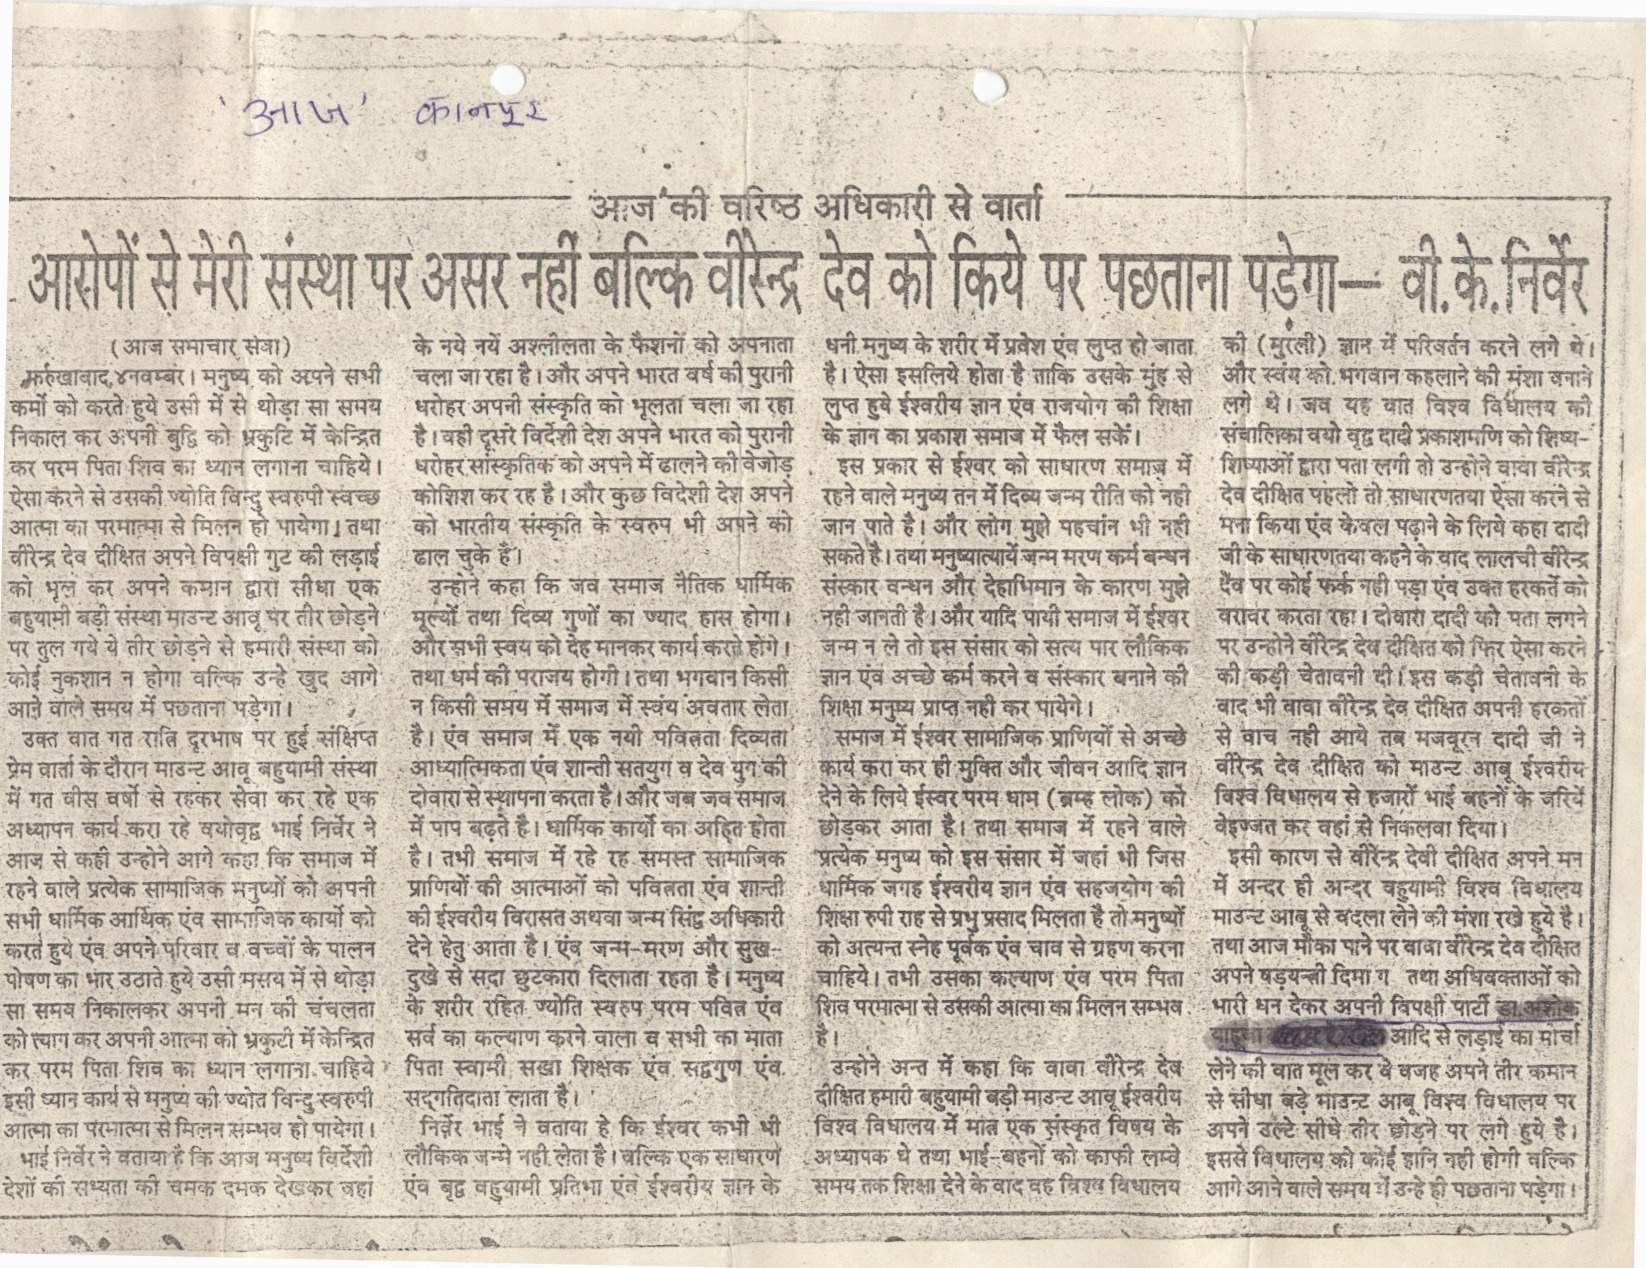 'आज' कानपुर
आज की वरिष्ठ अधिकारी से वार्ता
आरोपों से मेरी संस्था पर असर नहीं बल्कि वीरेन्द्र देव को किये पर पछताना पड़ेगा— वी.के.निर्वेर
(आज समाचार सेवा)
फर्रुखाबाद,४नवम्बर। मनुष्य को अपने सभी
कर्मो को करते हुये उसी में से थोड़ा सा समय
निकाल कर अपनी बुद्वि को भ्रकुटि में केन्द्रित
कर परम पिता शिव का ध्यान लगाना चाहिये।
ऐसा करने से उसकी ज्योति विन्दु स्वरुपी स्वच्छ
आत्मा का परमात्मा से मिलन हो पायेगा। तथा
वीरेन्द्र देव दीक्षित अपने विपक्षी गुट की लड़ाई
को भूल कर अपने कमान द्वारा सीधा एक
बहुयामी बड़ी संस्था माउन्ट आवू पर तीर छोड़ने
पर तुल गये ये तीर छोड़ने से हमारी संस्था को
कोई नुकशान न होगा वल्कि उन्हे खुद आगे
आने वाले समय में पछताना पड़ेगा।
उक्त वात गत रात्रि दूरभाष पर हुई संक्षिप्त
प्रेम वार्ता के दौरान माउन्ट आवू बहुयामी संस्था
में गत वीस वर्षो से रहकर सेवा कर रहे एक
अध्यापन कार्य करा रहे वयोवृद्व भाई निर्वेर ने
आज से कही उन्होने आगे कहा कि समाज में
रहने वाले प्रत्येक सामाजिक मनुष्यों को अपनी
सभी धार्मिक आर्थिक एंव सामाजिक कार्यो को
करते हुये एंव अपने परिवार व वच्चों के पालन
पोषण का भार उठाते हुये उसी मसय में से थोड़ा
सा समय निकालकर अपनी मन की चंचलता
को त्याग कर अपनी आत्मा को भ्रकुटी में केन्द्रित
कर परम पिता शिव का ध्यान लगाना चाहिये
इसी ध्यान कार्य से मनुष्य की ज्योत विन्दु स्वरुपी
आत्मा का परमात्मा से मिलन सम्भव हो पायेगा।
भाई निर्वेर ने वताया है कि आज मनुष्य विर्देशी
देशों की सभ्यता की चमक दमक देखकर वहां
के नये नयें अश्लीलता के फैशनों को अपनाता
चला जा रहा है। और अपने भारत वर्ष की पुरानी
धरोहर अपनी संस्कृति को भूलता चला जा रहा
है। वही दूसरे विर्देशी देश अपने भारत को पुरानी
धरोहर सांस्कृतिक को अपने में ढालने की वेजोड़
कोशिश कर रह है। और कुछ विदेशी देश अपने
को भारतीय संस्कृति के स्वरुप भी अपने को
ढाल चुके है।
उन्होने कहा कि जव समाज नैतिक धार्मिक
मूल्यों तथा दिव्य गुणों का ज्याद हास होगा।
और सभी स्वय को देह मानकर कार्य करते होंगे।
तथा धर्म की पराजय होगी। तथा भगवान किसी
न किसी समय में समाज में स्वंय अवतार लेता
है। एंव समाज में एक नयी पवित्रता दिव्यता
आध्यात्मिकता एंव शान्ती सतयुग व देव युग की
दोवारा से स्थापना करता है।और जब जव समाज
में पाप बढ़ते है। धार्मिक कार्यो का अहित होता
है। तभी समाज में रहे रह समस्त सामाजिक
प्राणियों की आत्माओं को पवित्रता एंव शान्ती
की ईश्वरीय विरासत अथवा जन्म सिद्व अधिकारी
देने हेतु आता है। एंव जन्म-मरण और सुख-
दुखे से सदा छुटकारा दिलाता रहता है। मनुष्य
के शरीर रहित ज्योति स्वरुप परम पवित्र एंव
सर्व का कल्याण करने वाला व सभी का माता
पिता स्वामी सखा शिक्षक एंव सद्वगुण एंव
सद्गतिदाता लाता है।
निर्वेर भाई ने वताया हे कि ईश्वर कभी भी
लौकिक जन्मे नही लेता है। वल्कि एक साधारण
एंव बृद्व वहुयामी प्रतिभा एंव ईश्वरीय ज्ञान के
धनी मनुष्य के शरीर में प्रवेश एंव लुप्त हो जाता
है। ऐसा इसलिये होता है ताकि उसके मुंह से
लुप्त हुये ईश्वरीय ज्ञान एंव राजयोग की शिक्षा
के ज्ञान का प्रकाश समाज में फैल सकें।
इस प्रकार से ईश्वर को साधारण समाज में
रहने वाले मनुष्य तन में दिव्य जन्म रीति को नही
जान पाते है। और लोग मुझे पहचांन भी नही
सकते है। तथा मनुष्यात्यायें जन्म मरण कर्म बन्धन
संस्कार वन्धन और देहाभिमान के कारण मुझे
नही जानती है। और यादि पायी समाज में ईश्वर
जन्म न ले तो इस संसार को सत्य पार लौकिक
ज्ञान एंव अच्छे कर्म करने व संस्कार बनाने की
शिक्षा मनुष्य प्राप्त नही कर पायेगे।
समाज में ईश्वर सामाजिक प्राणियों से अच्छे
कार्य करा कर ही मुक्ति और जीवन आदि ज्ञान
देने के लिये ईस्वर परम धाम (ब्रम्ह लोक) को
छोड़कर आता है। तथा समाज में रहने वाले
प्रत्येक मनुष्य को इस संसार में जहां भी जिस
धार्मिक जगह ईश्वरीय ज्ञान एंव सहजयोग की
शिक्षा रुपी राह से प्रभु प्रसाद मिलता है तो मनुष्यों
को अत्यन्त स्नेह पूर्वक एंव चाव से ग्रहण करना
चाहिये। तभी उसका कल्याण एंव परम पिता
शिव परमात्मा से उसकी आत्मा का मिलन सम्भव
है।
उन्होने अन्त में कहा कि वावा वीरेन्द्र देव
दीक्षित हमारी बहुयामी बड़ी माउन्ट आवू ईश्वरीय
विश्व विधालय में मात्र एक संस्कृत विषय के
अध्यापक थे तथा भाई-बहनों को काफी लम्वे
समय तक शिक्षा देने के वाद वह विश्व विधालय
की (मुरली) ज्ञान में परिजर्तन करने लगे थे।
और स्वंय को भगवान कहलाने की मंशा वनाने
लगे थे। जव यह वात विश्व विधालय की
संचालिका वयो वृद्व दादी प्रकाशमणि को शिष्य-
शिष्याओं द्वारा पता लगी तो उन्होने वावा वीरेन्द्र
देव दीक्षित पहलो तो साधारणतया ऐसा करने से
मना किया एंव केवल पढ़ाने के लिये कहा दादी
जी के साधारणतया कहने के वाद लालची वीरेन्द्र
देव पर कोई फर्क नही पड़ा एंव उक्त हरकतें को
वरावर करता रहा। दोवारा दादी को पता लगने
पर उन्होने वीरेन्द्र देव दीक्षित को फिर ऐसा करने
की कड़ी चेतावनी दी। इस कड़ी चेतावनी के
वाद भी वावा वीरेन्द्र देव दीक्षित अपनी हरकतों
से वाच नही आये तब मजवूरन दादी जी ने
वीरेन्द्र देव दीक्षित को माउन्ट आबू ईश्वरीय
विश्व विधालय से हजारों भाई बहनों के जरियें
वेइज्जत कर वहां से निकलवा दिया।
इसी कारण से वीरेन्द्र देवी दीक्षित अपने मन
में अन्दर ही अन्दर वहुयामी विश्व विधालय
माउन्ट आबू से वदला लेने की मंशा रखे हुये है।
तथा आज मौका पाने पर वावा वीरेन्द्र देव दीक्षित
अपने षड़यन्त्री दिमाग तथा अधिवक्ताओं को
भारी धन देकर अपनी विपक्षी पार्टी डा.अशोक
आदि से लड़ाई का मार्चा
लेने की वात मूल कर वे वजह अपने तीर कमान
से सीधा बड़े माउन्ट आबू विश्व विधालय पर
अपने उल्टे सीधे तीर छोड़ने पर लगे हुये है।
इससे विधालय को कोई हानि नही होगी वल्कि
आगे आने वाले समय में उन्हे ही पछताना पड़ेगा।